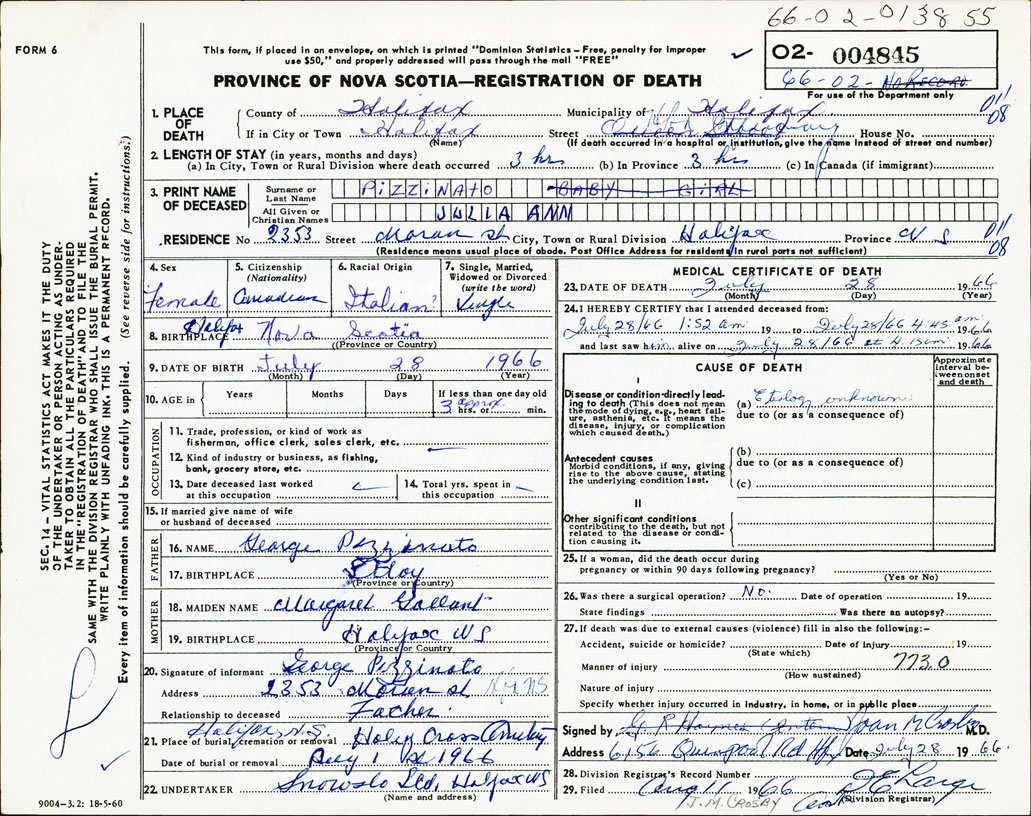 66-02-013855
FORM 6
This form, if placed in an envelope, on which is printed "Dominion Statistics – Free, penalty for improper
use $50," and properly addressed will pass through the mail "FREE"
PROVINCE OF NOVA SCOTIA—REGISTRATION OF DEATH
O2- 004845
66-02- No RECORD
For use of the Department only
SEC. 14 – VITAL STATISTICS ACT MAKES IT THE DUTY
OF THE UNDERTAKER OR PERSON ACTING AS UNDER-
TAKER TO OBTAIN ALL THE PARTICULARS REQUIRED
IN THE "REGISTRATION OF DEATH" AND TO FILE THE
SAME WITH THE DIVISION REGISTRAR WHO SHALL ISSUE THE BURIAL PERMIT.
WRITE PLAINLY WITH UNFADING INK. THIS IS A PERMANENT RECORD.
Every item of information should be carefully supplied. (See reverse side for instructions.)
1. PLACE OF DEATH
County of Halifax Municipality of Halifax 011 08
If in City or Town Halifax Street House No.
(Name) (If death occurred in a hospital or institution, give the name instead of street and number)
2. LENGTH OF STAY (in years, months and days)
(a) In City, Town or Rural Division where death occurred 3 hrs (b) In Province 3 hrs (c) In Canada (if immigrant)
3. PRINT NAME OF DECEASED
Surname or Last Name PIZZINATO BABY GIRL
All Given or Christian Names JULIA ANN
RESIDENCE No 2353 Street Moran St City, Town or Rural Division Halifax Province N S 011 08
(Residence means usual place of abode. Post Office Address for residents in rural parts not sufficient)
4. Sex Female
5. Citizenship (Nationality) Canadian
6. Racial Origin Italian?
7. Single, Married, Widowed or Divorced (write the word) Single
8. BIRTHPLACE Halifax Nova Scotia
(Province or Country)
9. DATE OF BIRTH July 28 1966
(Month) (Day) (Year)
10. AGE in Years Months Days If less than one day old
3 approx. hrs. or min.
OCCUPATION
11. Trade, profession, or kind of work as
fisherman, office clerk, sales clerk, etc.
12. Kind of industry or business, as fishing,
bank, grocery store, etc.
13. Date deceased last worked at this occupation
14. Total yrs. spent in this occupation
15. If married give name of wife
or husband of deceased
FATHER
16. NAME George Pizzinato
17. BIRTHPLACE Italy
(Province or Country)
MOTHER
18. MAIDEN NAME Margaret Gallant
19. BIRTHPLACE Halifax NS
(Province or Country)
20. Signature of informant George Pizzinato
Address 2353 Moran St Hfx NS
Relationship to deceased Father
Halifax, N.S.
21. Place of burial, cremation or removal Holy Cross Cemetery
Date of burial or removal Aug 1 st 1966
22. UNDERTAKER Snows Ltd, Halifax NS
(Name and address)
9004–3.2: 18-5-60
MEDICAL CERTIFICATE OF DEATH
23. DATE OF DEATH July 28 1966
(Month) (Day) (Year)
24. I HEREBY CERTIFY that I attended deceased from:
July 28/66 1:52 am 19 to July 28/66 4 45 am 1966
and last saw him alive on July 28/66 at 4:15am 1966
CAUSE OF DEATH
Approximate interval between onset and death
I
Disease or condition directly leading to death (This does not mean the mode of dying, e.g., heart failure, asthenia, etc. It means the disease, injury, or complication which caused death.)
(a) Etiology unknown
due to (or as a consequence of)
Antecedent causes
Morbid conditions, if any, giving rise to the above cause, stating the underlying condition last.
(b)
due to (or as a consequence of)
(c)
II
Other significant conditions
contributing to the death, but not related to the disease or condition causing it.
25. If a woman, did the death occur during
pregnancy or within 90 days following pregnancy?
(Yes or No)
26. Was there a surgical operation? No. Date of operation 19
State findings Was there an autopsy?
27. If death was due to external causes (violence) fill in also the following:–
Accident, suicide or homicide? Date of injury 19
(State which)
773.0
Manner of injury
(How sustained)
Nature of injury
Specify whether injury occurred in Industry, in home, or in public place
Signed by G R Haymes (Intern) Joan M Crosby M.D.
Address 6156 Quinpool Rd Hfx Date July 28 1966
28. Division Registrar's Record Number
29. Filed Aug 11 1966
J.M. CROSBY (Division Registrar)